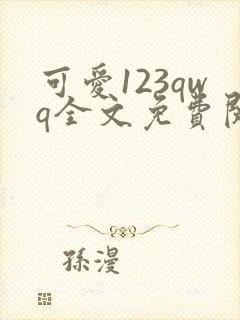 可愛123qw
q全文免費閱
孫漫